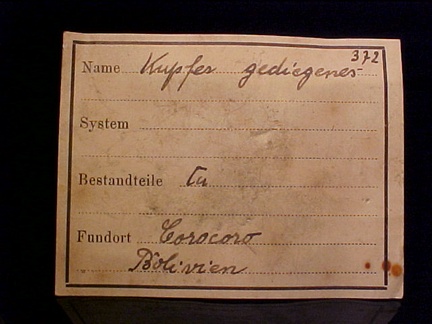 372
Name Kupfer gediegenes
System
Bestandteile Cu
Fundort Corocoro
Bolivien